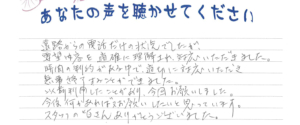 あなたの声を聴かせてください
遠路からの電話だけの状況でしたが、
要望内容を迅速に理解され対応いただきました。
時間の制約がある中で、適切に対応いただき
無事終了することができました。
以前利用したことがあり、今回お願いしました。
今後何かあればお願いしたいと思っています。
スタッフの皆さんありがとうございました。